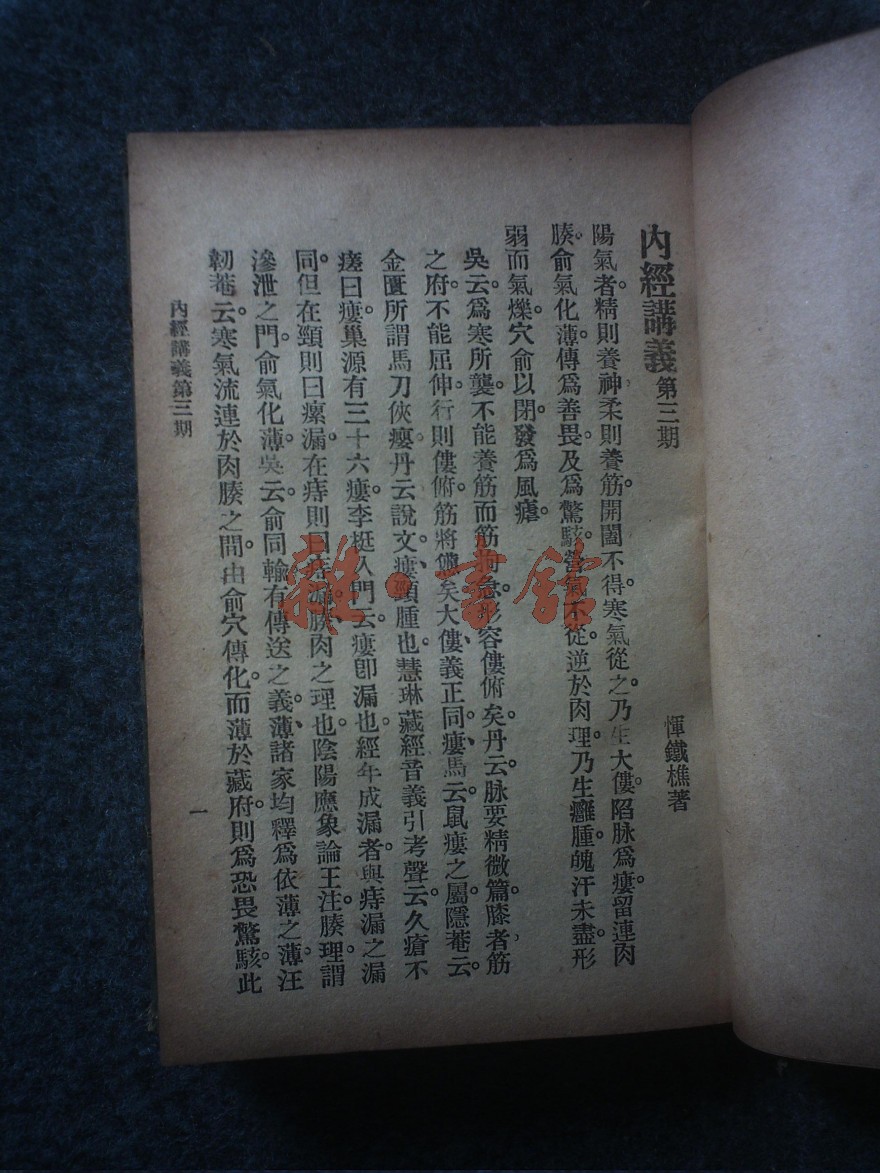 內經講義第三期
惲鐵樵著
陽氣者。精則養神柔則養筋。開闔不得。寒氣從之。乃生大僂。陷脉爲瘻。留連肉
腠。俞氣化薄。傳爲善畏。及爲驚駭。營氣不從。逆於肉理。乃生癰腫。魄汗未盡。形
弱而氣爍。穴俞以閉。發爲風瘧。
吳云。爲寒所襲。不能養筋。而筋拘急。形容僂俯矣。丹云。脉要精微篇。膝者筋
之府。不能屈伸。行則僂俯。筋將憊矣。大僂義正同。瘻、馬云。鼠瘻之屬。隱菴云。
金匱所謂馬刀俠癭。丹云、說文、瘻、頸腫也。慧琳藏經音義引考聲云。久瘡不
瘥曰瘻。巢源有三十六瘻。李梴入門云。瘻卽漏也。經年成漏者。與痔漏之漏
同。但在頸則曰瘰漏。在痔則曰痔漏。腠、肉之理也。陰陽應象論王注。腠理。謂
滲泄之門。俞氣化薄。吳云。俞同輸。有傳送之義。薄、諸家均釋爲依薄之薄。汪
韌菴云。寒氣流連於肉腠之間。由俞穴傳化。而薄於藏府。則爲恐畏驚駭。此
內經講義第三期
一
雜·書館